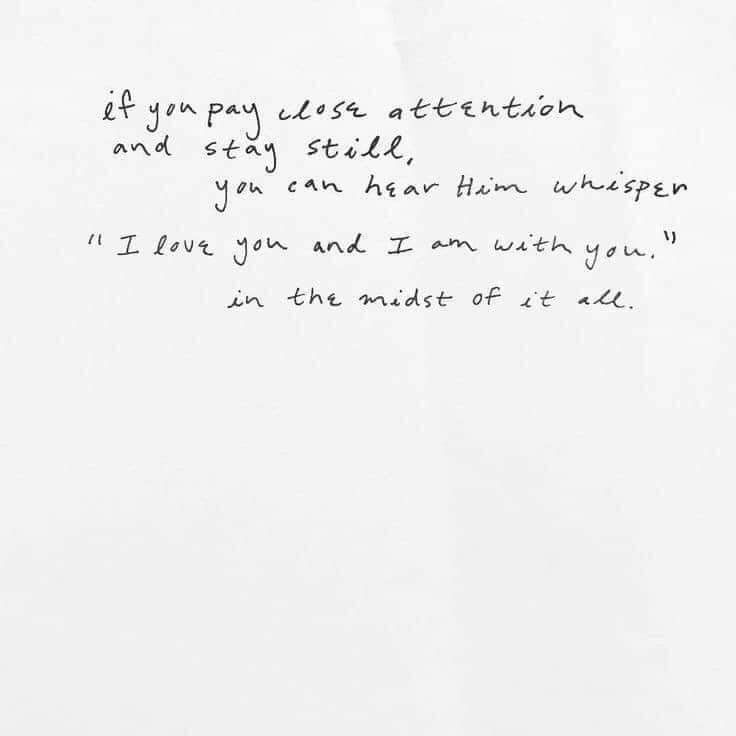 if you pay close attention
and stay still,
you can hear Him whisper
"I love you and I am with you."
in the midst of it all.